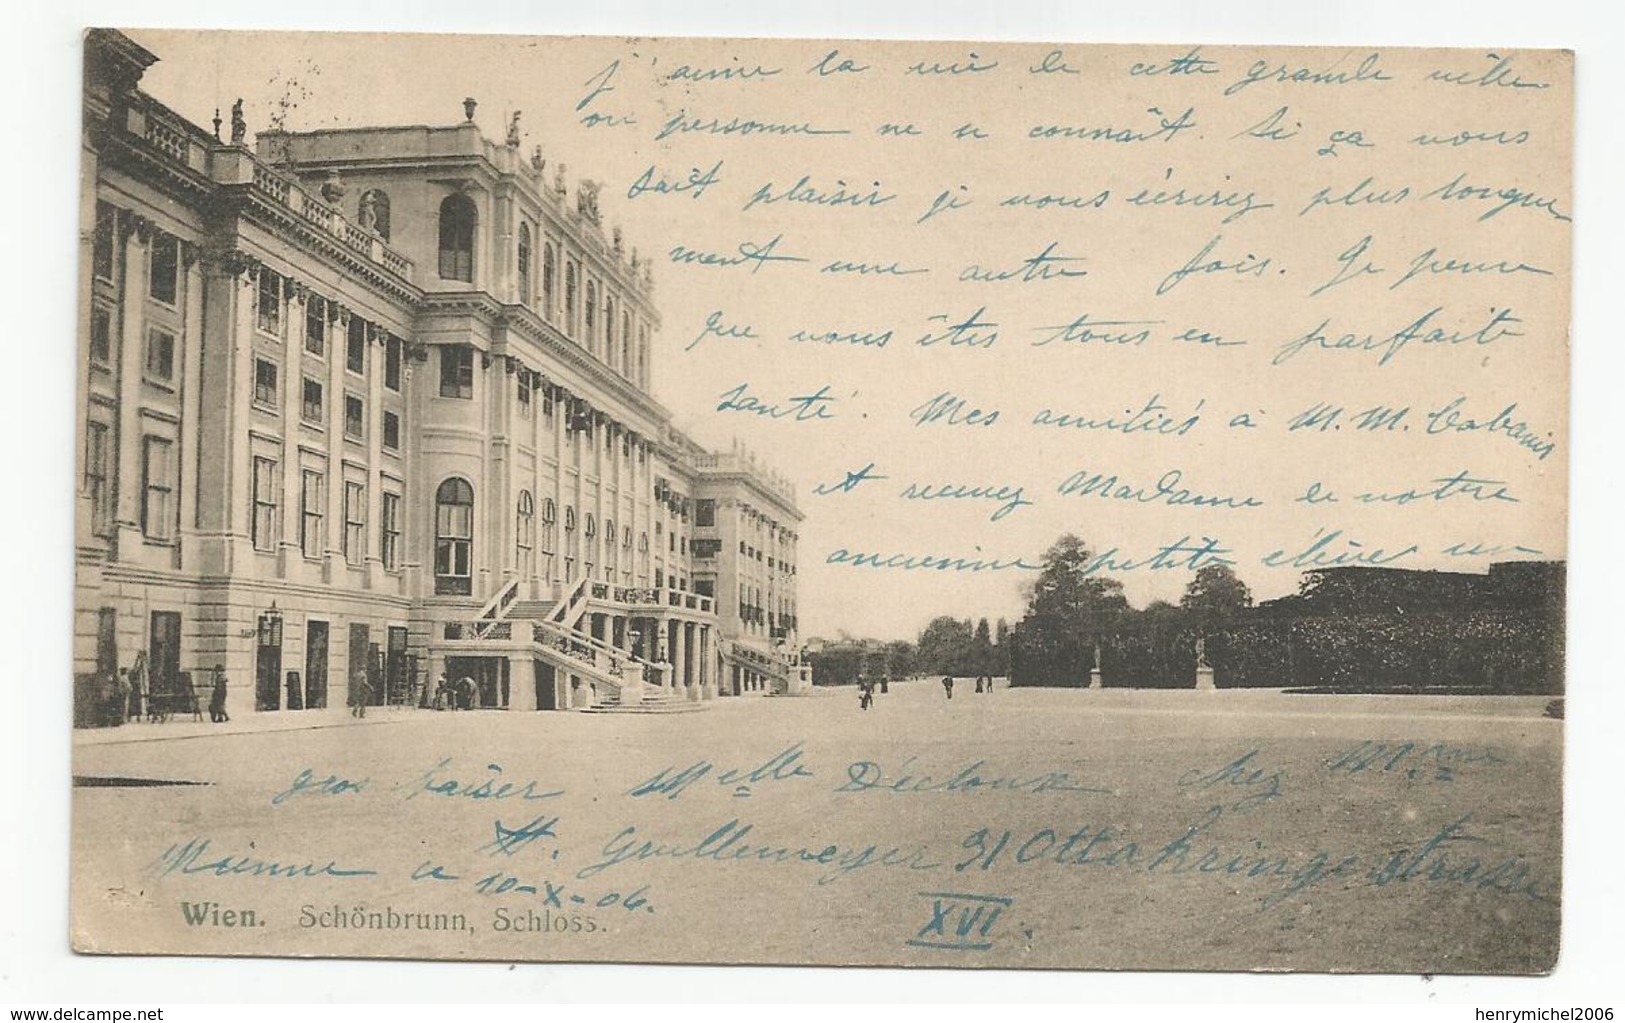 j'aime la vie de cette grande ville
ou personne ne se connaît. Si ça vous
fait plaisir je vous écrirez plus longue
ment une autre fois. Je pense
que vous êtes tous en parfaite
santé. Mes amitiés à M.M. Cabanis
et recevez Madame de notre
ancienne petite élève un
gros baiser. Melle Décloux chez M.me
H. Grullemeyer 31 Ottakringerstrasse
Vienne le 10-X-06.
XVI.
Wien. Schönbrunn, Schloss.
www.delcampe.net
henrymichel2006